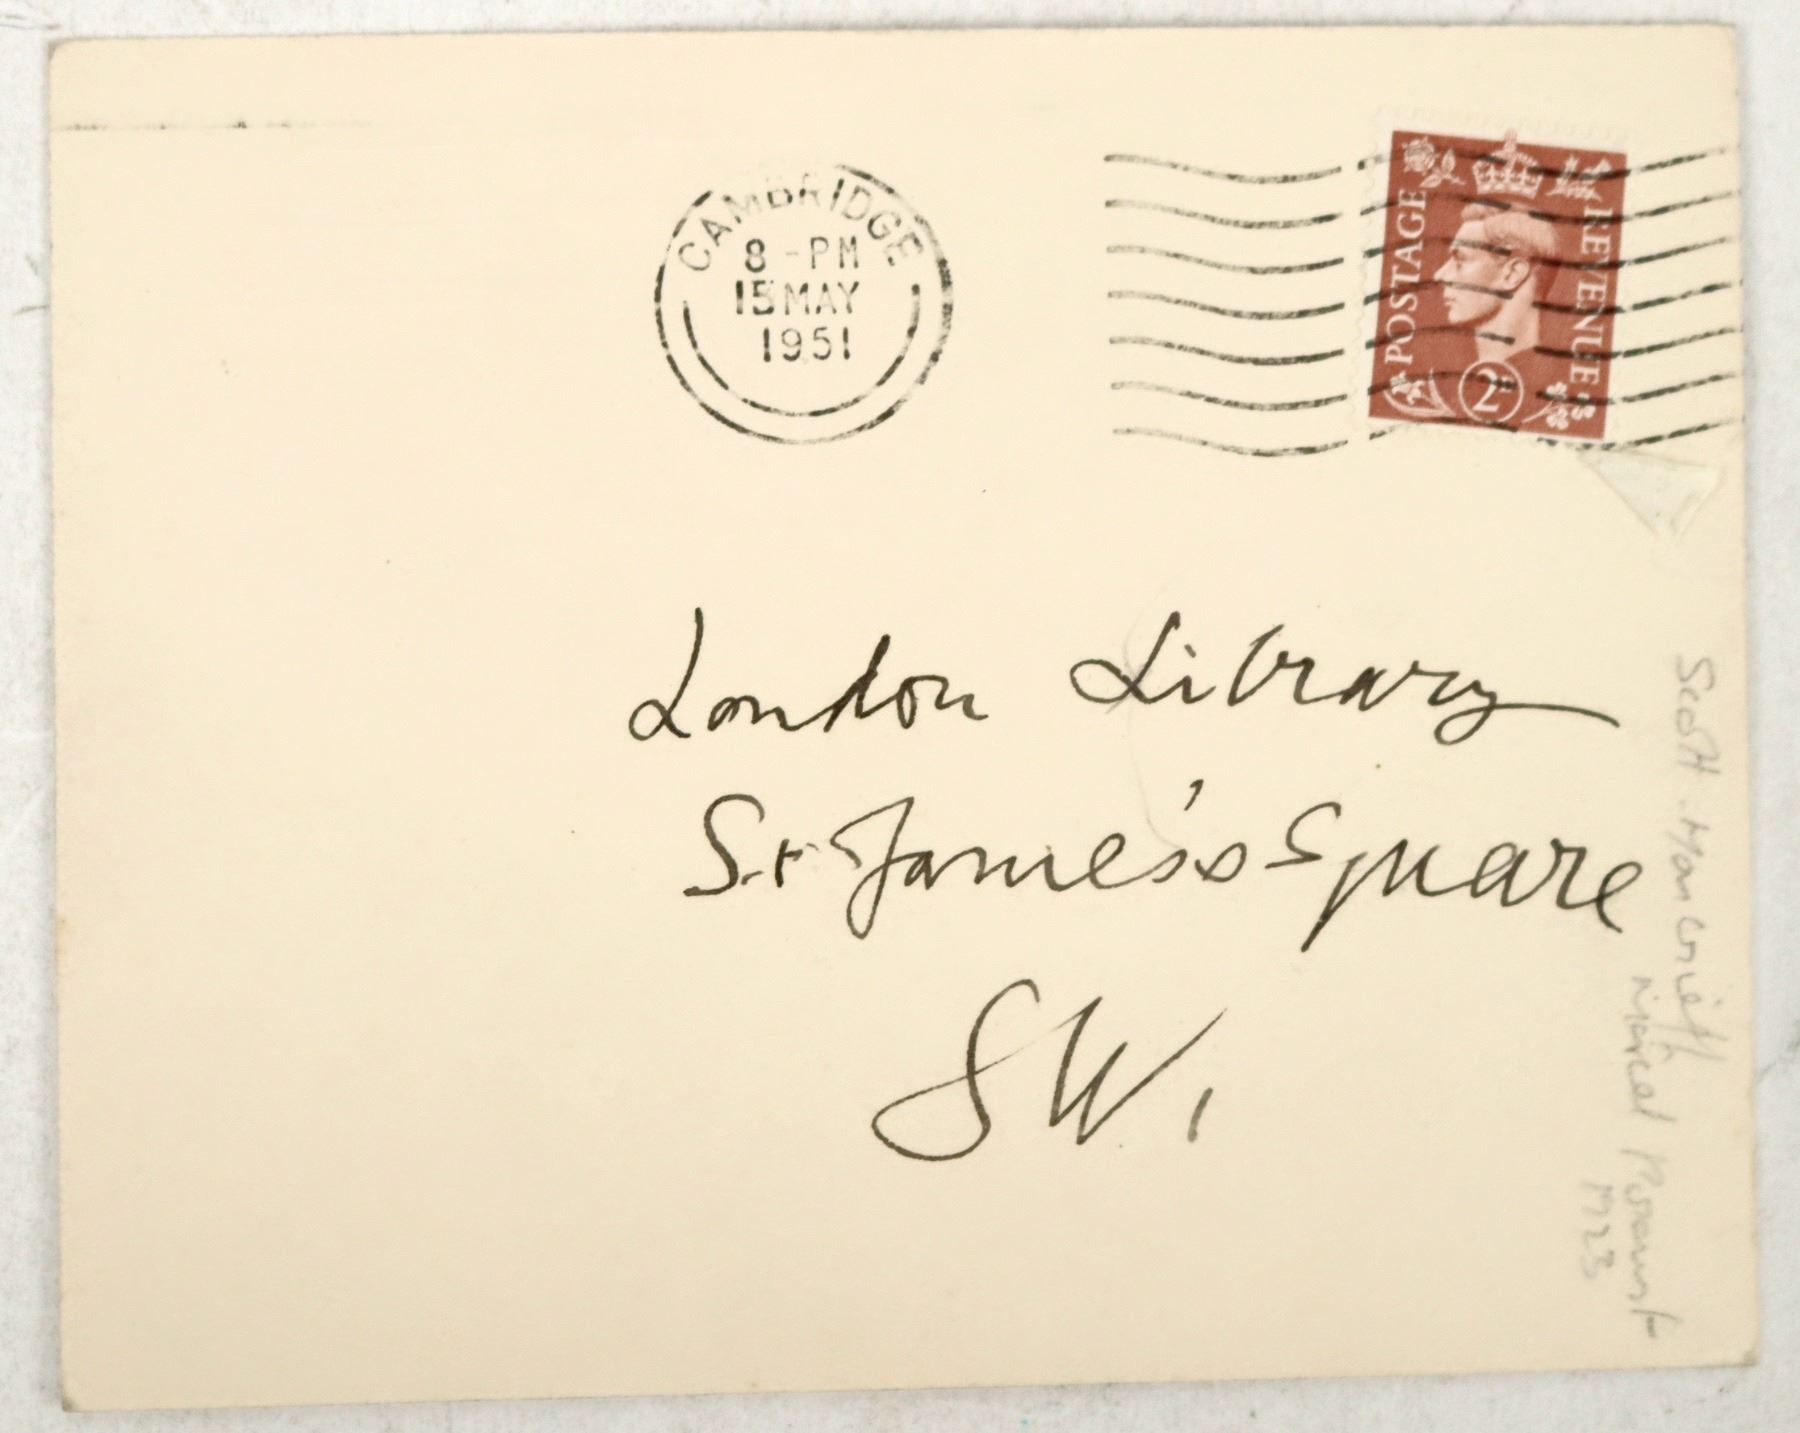 CAMBRIDGE
8-PM
15 MAY
1951
POSTAGE
REVENUE
2D
London Library
St James's Square
SW1
Scott Moncrieff
Marcel Proust
1923